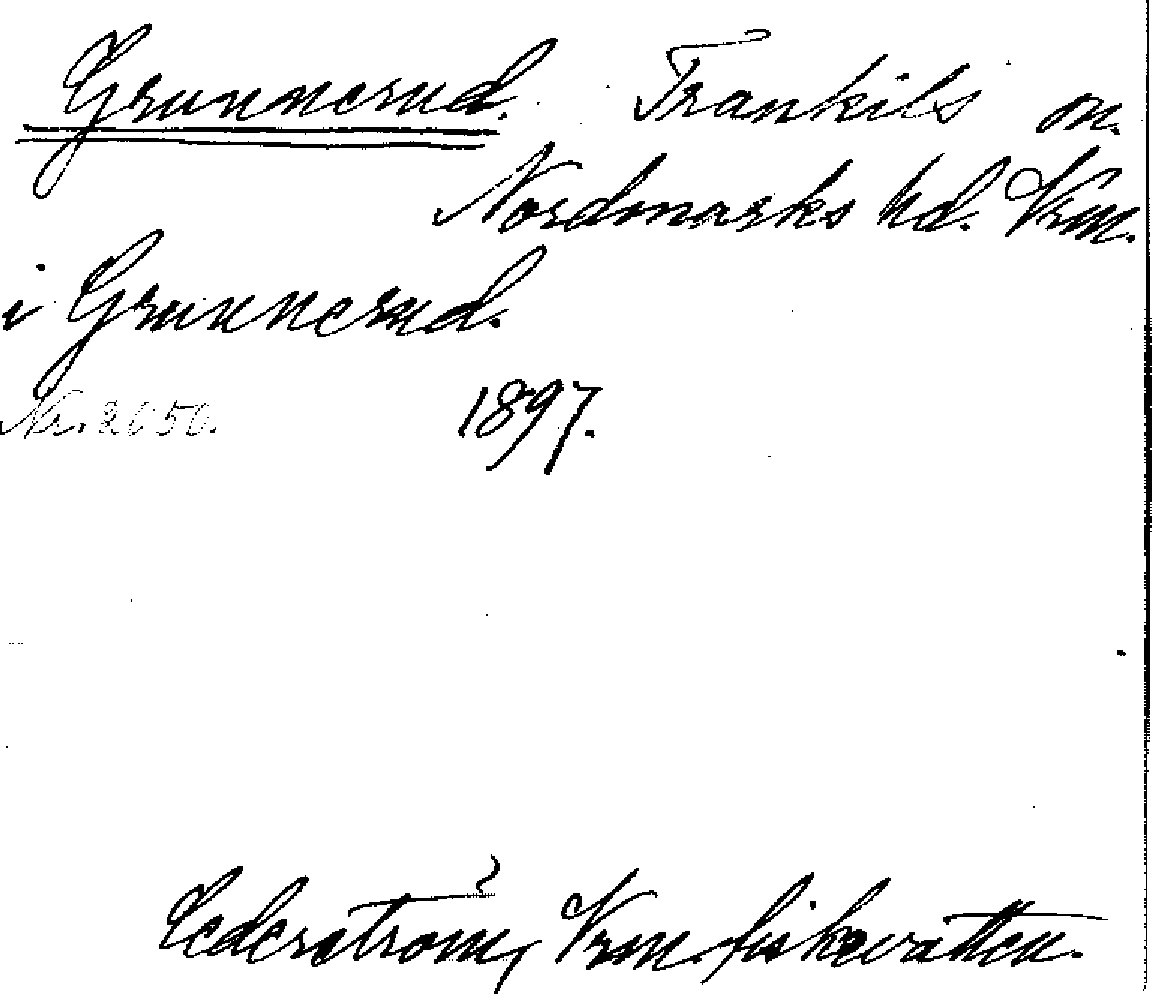 Grunnerud. Trankils sn.
Nordmarks hd. Vrm.
i Grunnerud.
Nr. 2650. 1897.
Cederström, Vrm. fiskevatten.